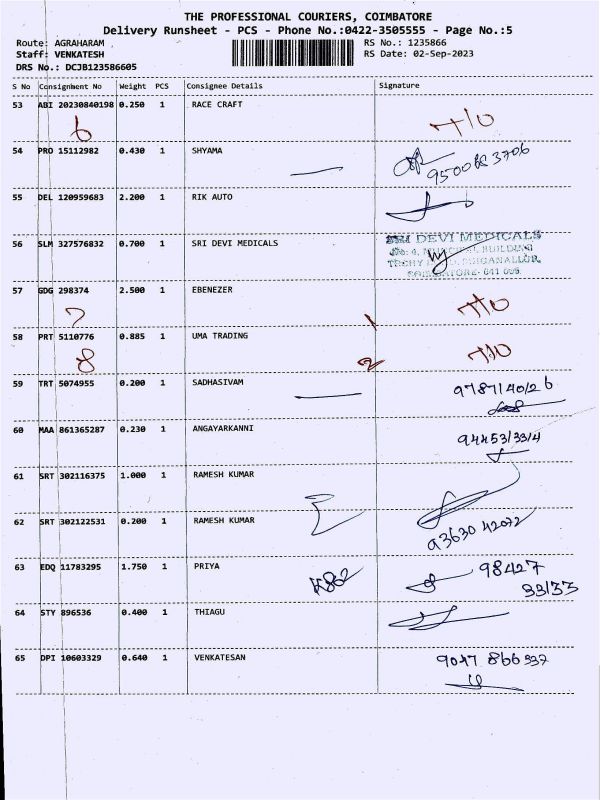 THE PROFESSIONAL COURIERS, COIMBATORE
Delivery Runsheet - PCS - Phone No.:0422-3505555 - Page No.:5
Route: AGRAHARAM RS No.: 1235866
Staff: VENKATESH RS Date: 02-Sep-2023
DRS No.: DCJB123586605
S No Consignment No Weight PCS Consignee Details Signature
53 ABI 20230840198 0.250 1 RACE CRAFT
6 T/O
54 PRO 15112982 0.430 1 SHYAMA
55 DEL 120959683 2.200 1 RIK AUTO
56 SLM 327576832 0.700 1 SRI DEVI MEDICALS SRI DEVI MEDICALS
57 GDG 298374 2.500 1 EBENEZER
7 1 T/O
58 PRT 5110776 0.885 1 UMA TRADING
8 2 T/O
59 TRT 5074955 0.200 1 SADHASIVAM 9787140126
60 MAA 861365287 0.230 1 ANGAYARKANNI
61 SRT 302116375 1.000 1 RAMESH KUMAR
62 SRT 302122531 0.200 1 RAMESH KUMAR
93630 42072
63 EDQ 11783295 1.750 1 PRIYA 98427
33133
64 STY 896536 0.400 1 THIAGU
65 DPI 10603329 0.640 1 VENKATESAN